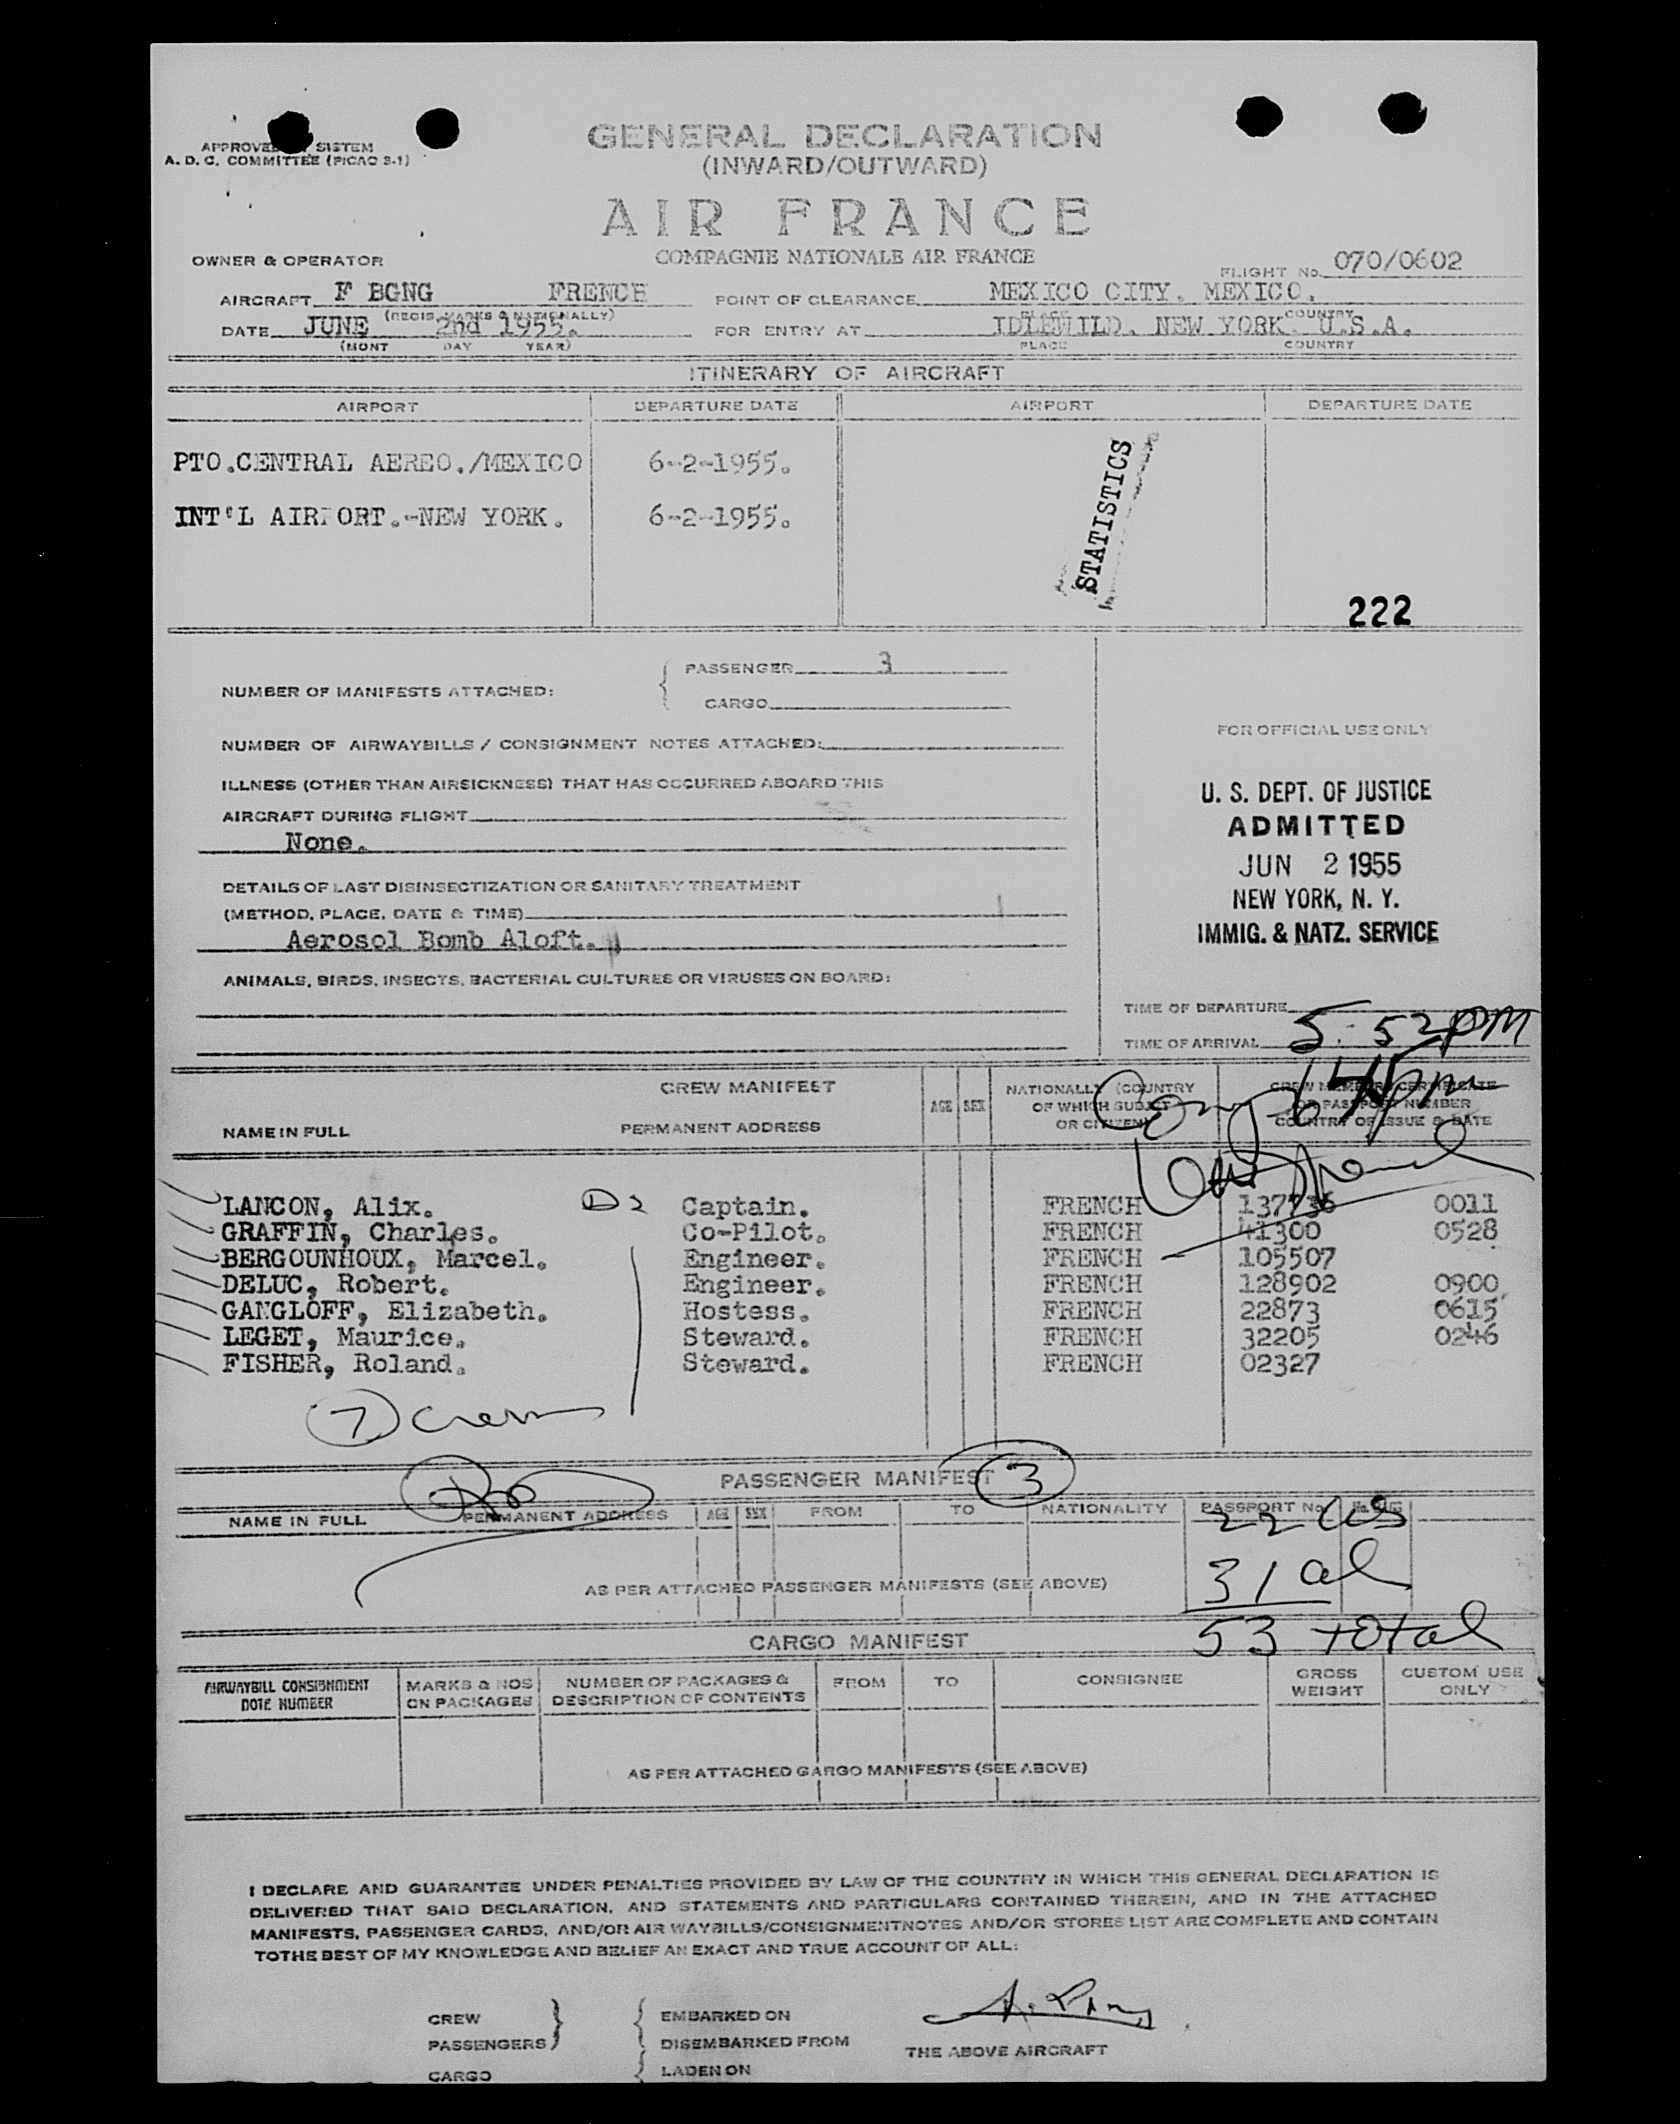 GENERAL DECLARATION
(INWARD/OUTWARD)
SISTEM
A. D. C. COMMITTEE (PICAO S-1)
AIR FRANCE
COMPAGNIE NATIONALE AIR FRANCE
OWNER & OPERATOR
FLIGHT No. 070/0602
AIRCRAFT F BGNG FRENCH POINT OF CLEARANCE MEXICO CITY. MEXICO.
(REGIS. MARKS & NATIONALLY) PLACE COUNTRY
DATE JUNE 2nd 1955. FOR ENTRY AT IDLEWILD. NEW YORK U.S.A.
(MONT DAY YEAR) PLACE COUNTRY
ITINERARY OF AIRCRAFT
AIRPORT DEPARTURE DATE AIRPORT DEPARTURE DATE
PTO.CENTRAL AEREO./MEXICO 6-2-1955.
INT'L AIRPORT.-NEW YORK. 6-2-1955.
STATISTICS
222
PASSENGER 3
NUMBER OF MANIFESTS ATTACHED:
CARGO
FOR OFFICIAL USE ONLY
NUMBER OF AIRWAYBILLS / CONSIGNMENT NOTES ATTACHED:
ILLNESS (OTHER THAN AIRSICKNESS) THAT HAS OCCURRED ABOARD THIS
AIRCRAFT DURING FLIGHT
None.
U. S. DEPT. OF JUSTICE
ADMITTED
JUN 2 1955
NEW YORK, N. Y.
IMMIG. & NATZ. SERVICE
DETAILS OF LAST DISINSECTIZATION OR SANITARY TREATMENT
(METHOD, PLACE, DATE & TIME)
Aerosol Bomb Aloft.
ANIMALS, BIRDS, INSECTS, BACTERIAL CULTURES OR VIRUSES ON BOARD:
TIME OF DEPARTURE
TIME OF ARRIVAL 5:52 PM
CREW MANIFEST
NAME IN FULL PERMANENT ADDRESS AGE SEX
NATIONALLY (COUNTRY
OF WHICH SUBJET
OR CITIZEN)
CREW MEMBERS CERTIFICATE
OR PASSPORT NUMBER
COUNTRY OF ISSUE & DATE
LANCON, Alix. D2 Captain. FRENCH 137736 0011
GRAFFIN, Charles. Co-Pilot. FRENCH 41300 0528
BERGOUNHOUX, Marcel. Engineer. FRENCH 105507
DELUC, Robert. Engineer. FRENCH 128902 0900
GANGLOFF, Elizabeth. Hostess. FRENCH 22873 0615
LEGET, Maurice. Steward. FRENCH 32205 0246
FISHER, Roland. Steward. FRENCH 02327
7 Crew
PASSENGER MANIFEST 3
NAME IN FULL PERMANENT ADDRESS AGE SEX FROM TO NATIONALITY PASSPORT No.
22 US
31 al
AS PER ATTACHED PASSENGER MANIFESTS (SEE ABOVE)
53 total
CARGO MANIFEST
AIRWAYBILL CONSIGNMENT
NOTE NUMBER
MARKS & NOS
ON PACKAGES
NUMBER OF PACKAGES &
DESCRIPTION OF CONTENTS
FROM TO CONSIGNEE
GROSS
WEIGHT
CUSTOM USE
ONLY
AS PER ATTACHED CARGO MANIFESTS (SEE ABOVE)
I DECLARE AND GUARANTEE UNDER PENALTIES PROVIDED BY LAW OF THE COUNTRY IN WHICH THIS GENERAL DECLARATION IS
DELIVERED THAT SAID DECLARATION, AND STATEMENTS AND PARTICULARS CONTAINED THEREIN, AND IN THE ATTACHED
MANIFESTS, PASSENGER CARDS, AND/OR AIR WAYBILLS/CONSIGNMENTNOTES AND/OR STORES LIST ARE COMPLETE AND CONTAIN
TOTHE BEST OF MY KNOWLEDGE AND BELIEF AN EXACT AND TRUE ACCOUNT OF ALL:
CREW EMBARKED ON
PASSENGERS DISEMBARKED FROM THE ABOVE AIRCRAFT
CARGO LADEN ON